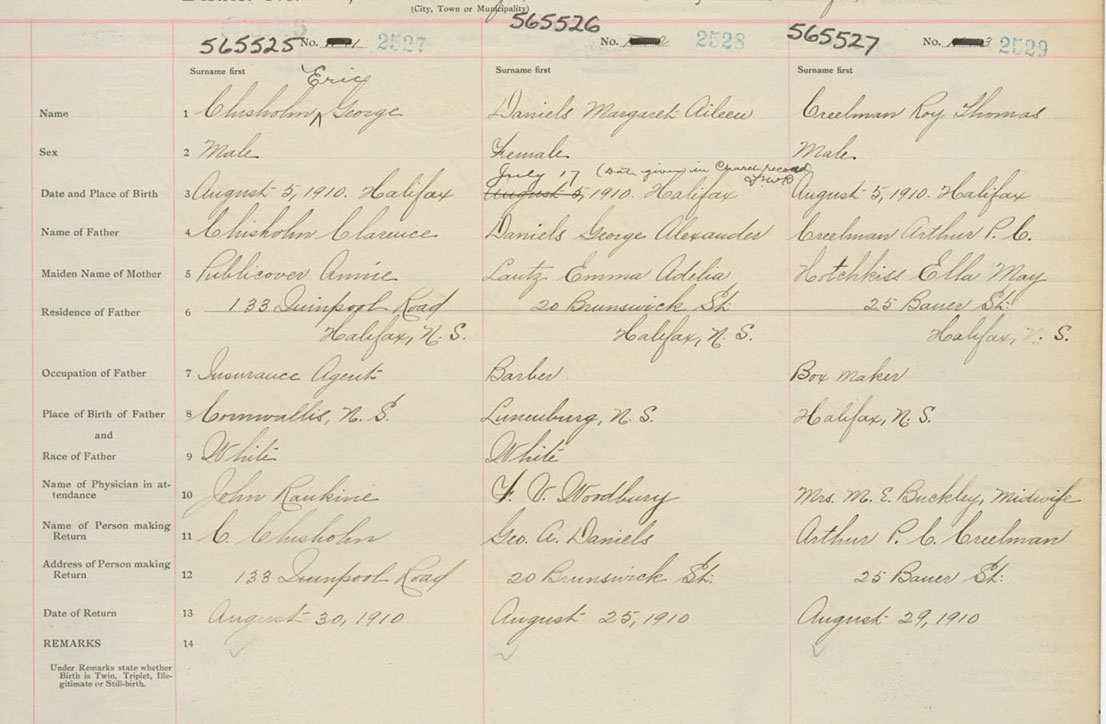 (City, Town or Municipality)
565525 No. 2527 565526 No. 2528 565527 No. 2529
Surname first Surname first Surname first
Eric
Name 1 Chisholm ^ George Daniels Margaret Aileen Creelman Roy Thomas
Sex 2 Male Female Male
July 17 (Date given in Church record
Date and Place of Birth 3 August 5, 1910. Halifax August 5, 1910. Halifax August 5, 1910. Halifax
Name of Father 4 Chisholm Clarence Daniels George Alexander Creelman Arthur P. C.
Maiden Name of Mother 5 Publicover Annie Lantz Emma Adelia Hotchkiss Ella May
Residence of Father 6 133 Quinpool Road 20 Brunswick St. 25 Bauer St.
Halifax, N. S. Halifax, N. S. Halifax, N. S.
Occupation of Father 7 Insurance Agent Barber Box Maker
Place of Birth of Father 8 Cornwallis, N. S. Lunenburg, N. S. Halifax, N. S.
and
Race of Father 9 White White
Name of Physician in at-
tendance 10 John Rankine F. V. Woodbury Mrs. M. E. Buckley, Midwife
Name of Person making
Return 11 C. Chisholm Geo. A. Daniels Arthur P. C. Creelman
Address of Person making
Return 12 133 Quinpool Road 20 Brunswick St. 25 Bauer St.
Date of Return 13 August 30, 1910 August 25, 1910 August 29, 1910
REMARKS 14
Under Remarks state whether
Birth is Twin, Triplet, Ille-
gitimate or Still-birth.